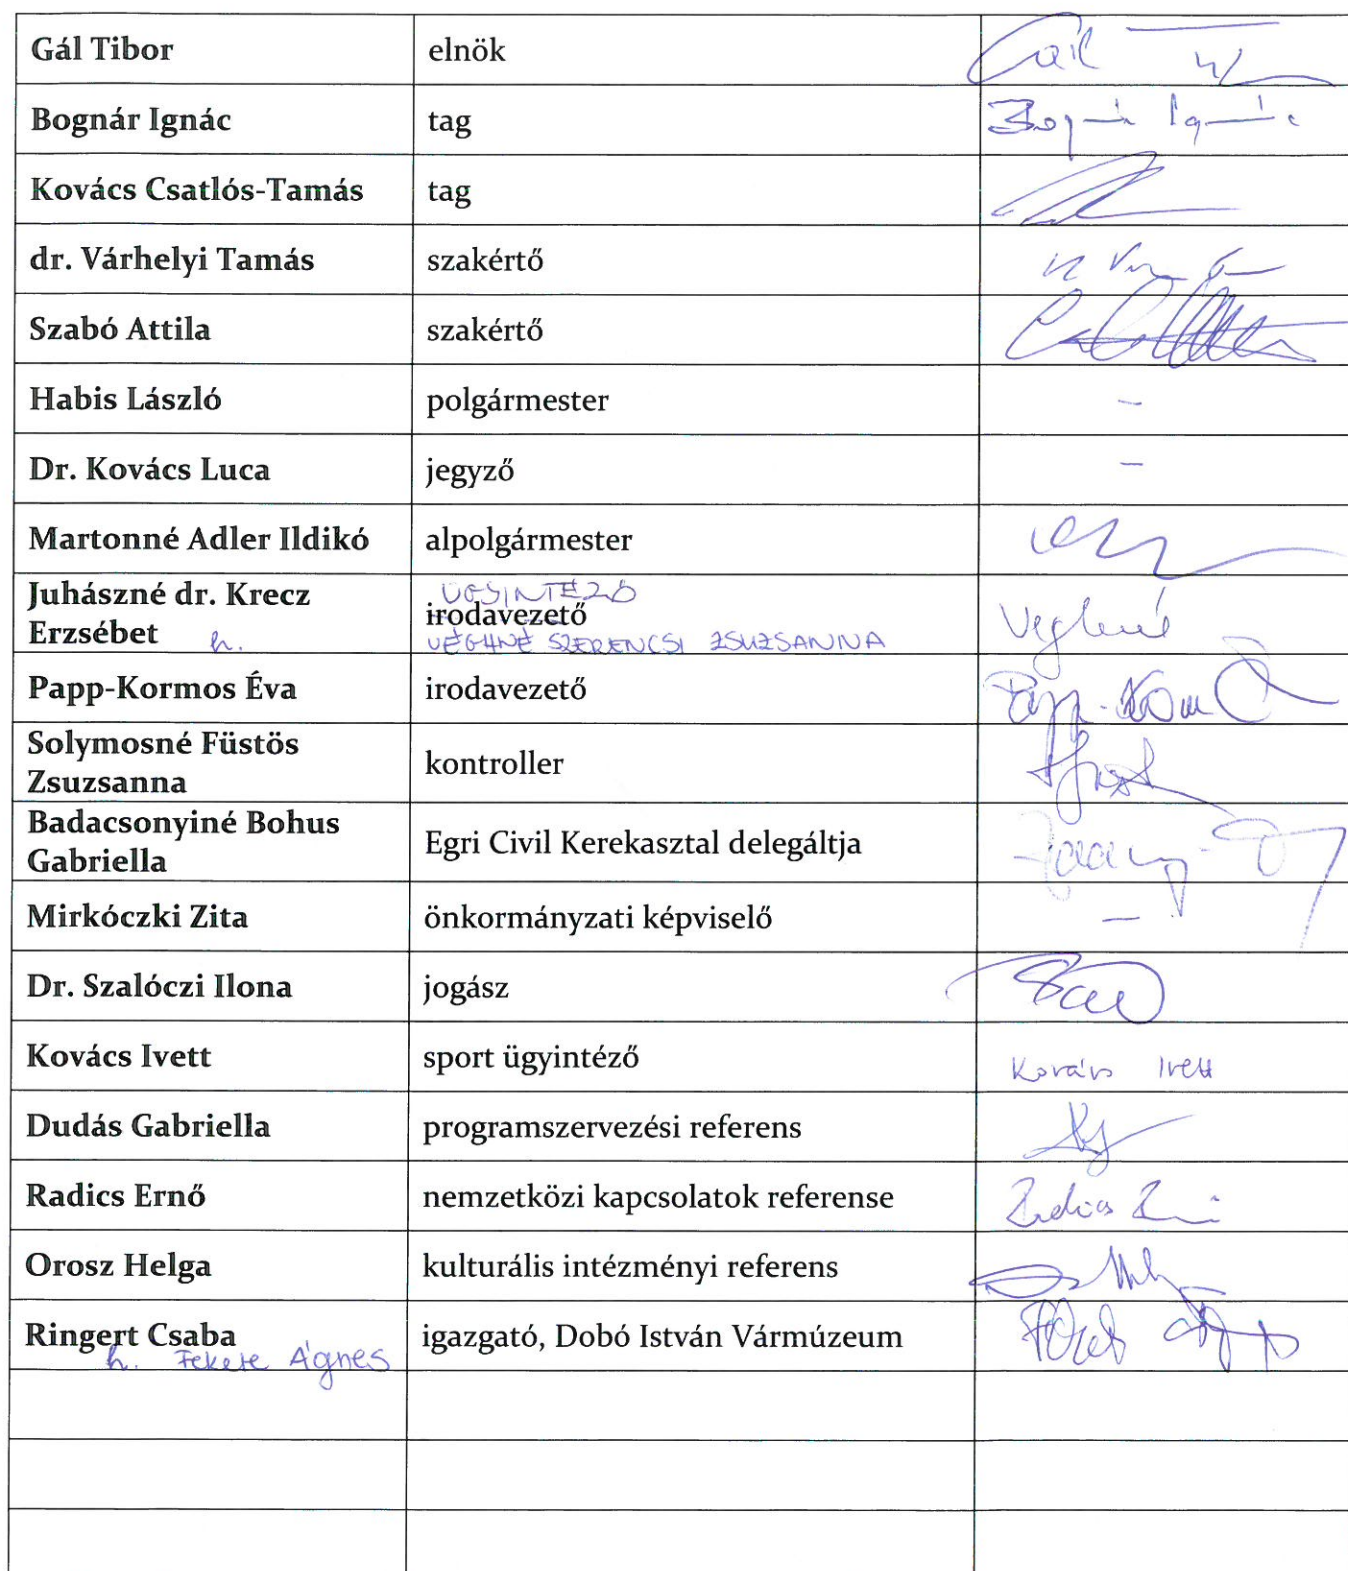 Gál Tibor elnök
Bognár Ignác tag Bognár Ignác
Kovács Csatlós-Tamás tag
dr. Várhelyi Tamás szakértő
Szabó Attila szakértő
Habis László polgármester –
Dr. Kovács Luca jegyző –
Martonné Adler Ildikó alpolgármester
Juhászné dr. Krecz ÜGYINTÉZŐ
Erzsébet h. irodavezető
VÉGHNÉ SZERENCSI ZSUZSANNA Véghné
Papp-Kormos Éva irodavezető
Solymosné Füstös
Zsuzsanna kontroller
Badacsonyiné Bohus
Gabriella Egri Civil Kerekasztal delegáltja
Mirkóczki Zita önkormányzati képviselő –
Dr. Szalóczi Ilona jogász
Kovács Ivett sport ügyintéző Kovács Ivett
Dudás Gabriella programszervezési referens
Radics Ernő nemzetközi kapcsolatok referense Radics Ernő
Orosz Helga kulturális intézményi referens
Ringert Csaba igazgató, Dobó István Vármúzeum
h. Fekete Ágnes